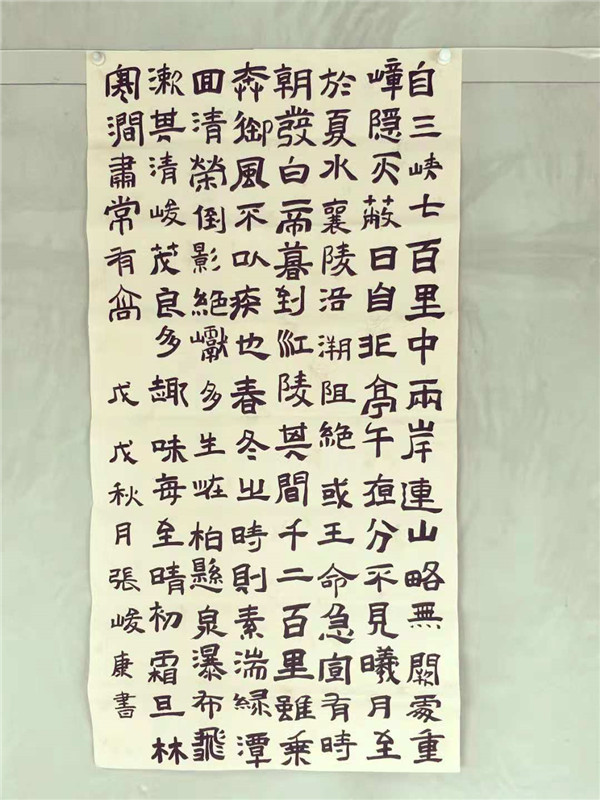 自三峽七百里中兩岸連山略無闕處重
嶂隱天蔽日自非亭午夜分不見曦月至
於夏水襄陵沿溯阻絶或王命急宣有時
朝發白帝暮到江陵其間千二百里雖乘
奔御風不以疾也春冬之時則素湍緑潭
回清榮倒影絶巘多生怪柏懸泉瀑布飛
漱其清峻茂良多趣味每至晴初霜旦林
寒澗肅常有高 戊戌秋月張峻康書